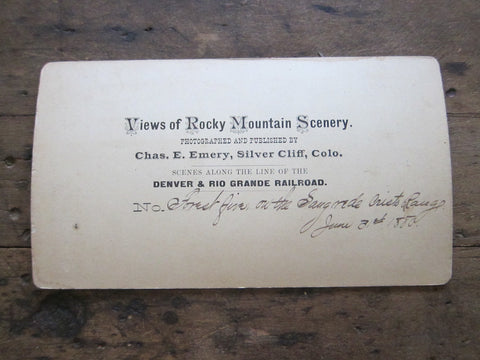 Views of Rocky Mountain Scenery.
PHOTOGRAPHED AND PUBLISHED BY
Chas. E. Emery, Silver Cliff, Colo.
SCENES ALONG THE LINE OF THE
DENVER & RIO GRANDE RAILROAD.
No. Forest fires on the Sangrede Cristo Range
June 1880.